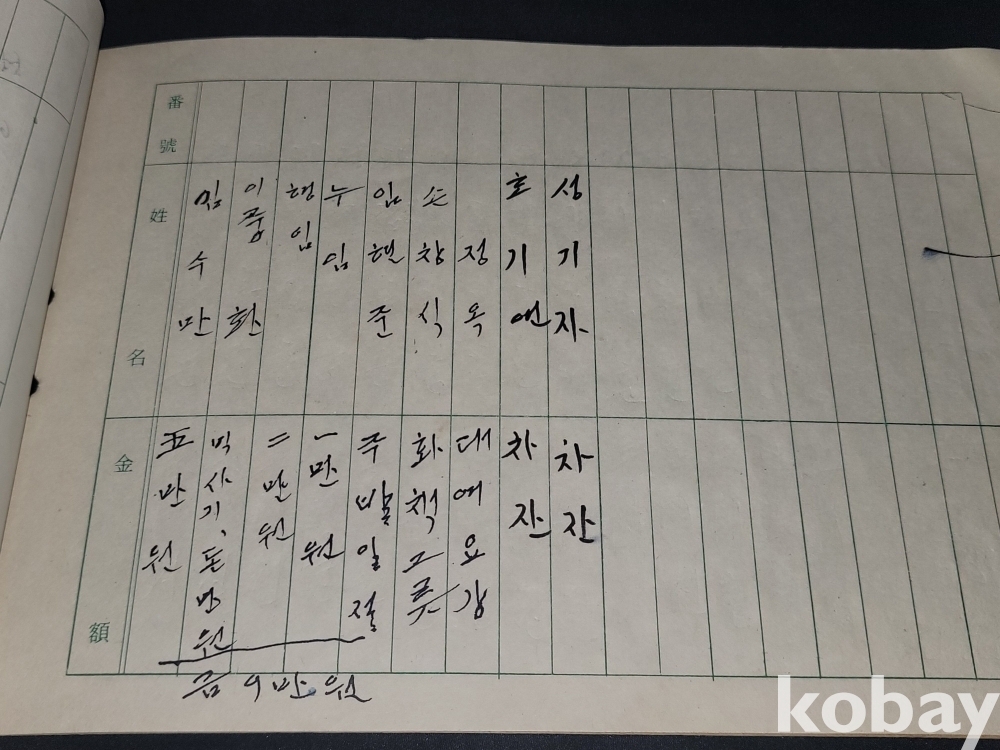 番號
姓名
金額
임수만 五만원
이풍환 믹사기、돈만원
형임 二만원
누임 一만원
임헌준 주발일절
손창식 화책그릇
정옥 대여요강
호기연 차잔
성기자 차잔
금 9만원
kobay